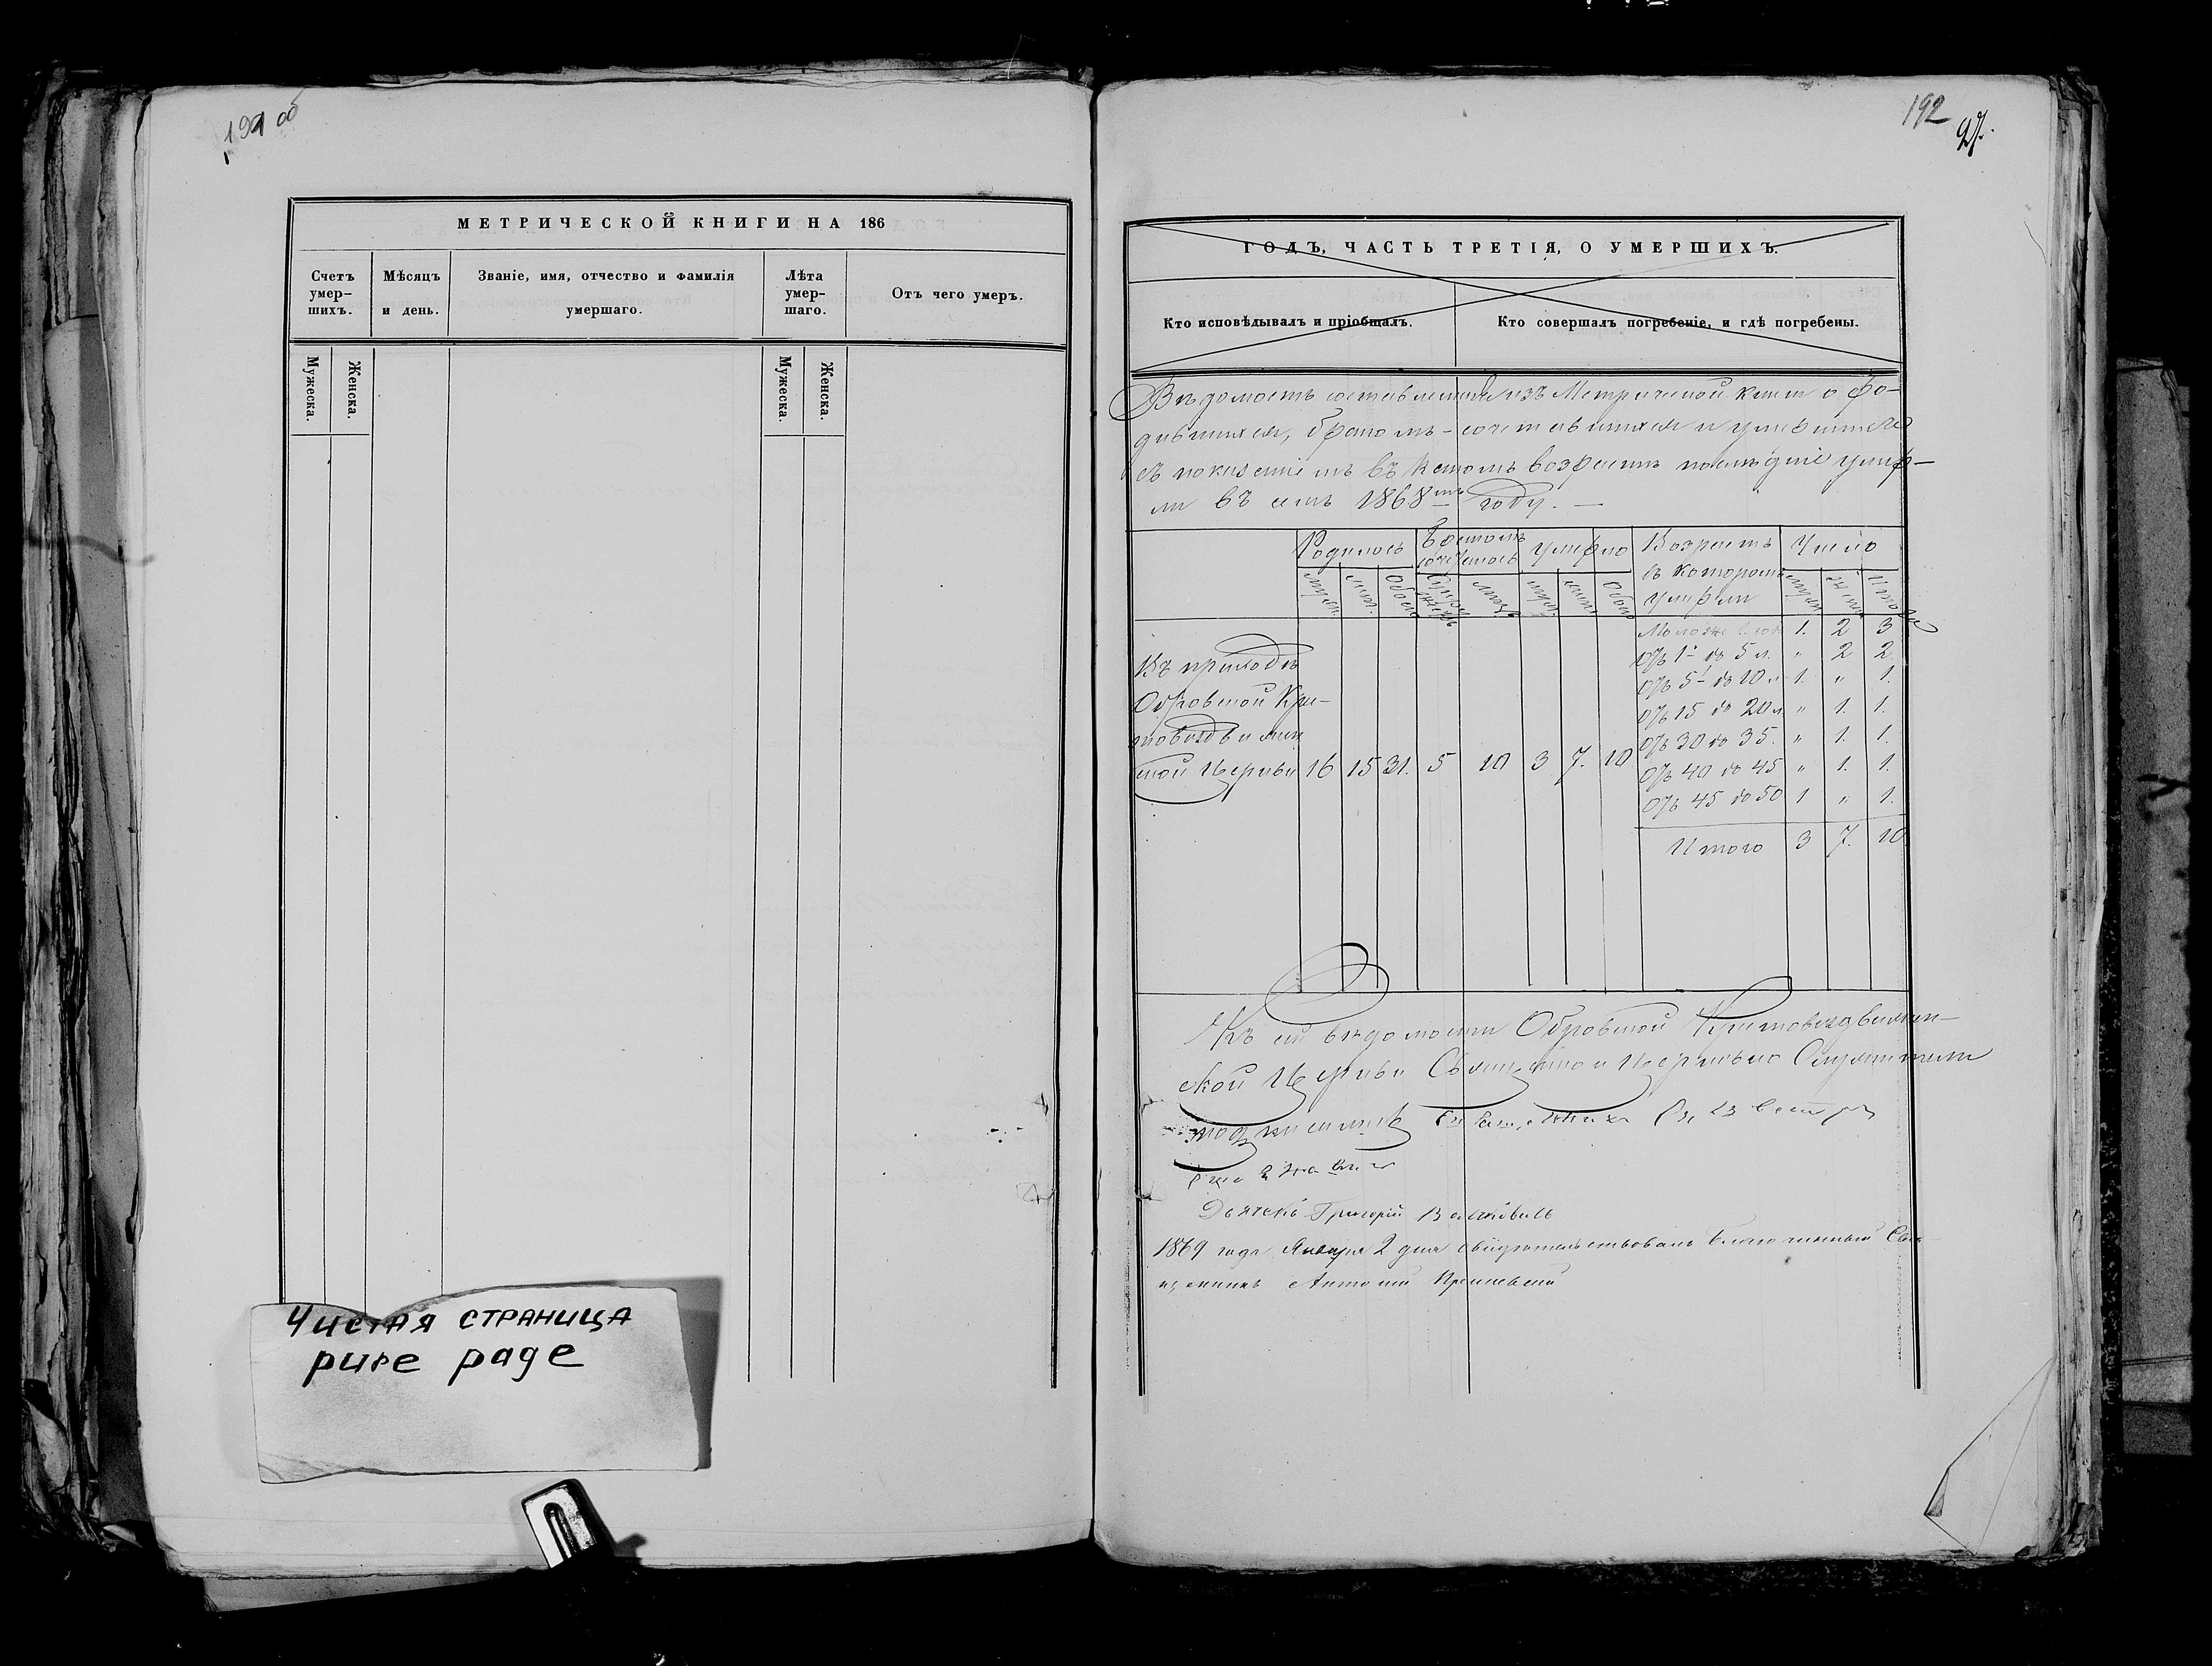 191 об
МЕТРИЧЕСКОЙ КНИГИ НА 186
Счетъ умер-шихъ.
Мѣсяцъ и день.
Званіе, имя, отчество и фамилія умершаго.
Лѣта умер-шаго.
Отъ чего умеръ.
Мужеска.
Женска.
Мужеска.
Женска.
Чистая страница
pure page
192
97.
ГОДЪ, ЧАСТЬ ТРЕТІЯ, О УМЕРШИХЪ.
Кто исповѣдывалъ и пріобщалъ.
Кто совершалъ погребеніе, и гдѣ погребены.
Вѣдомость составленная изъ Метрической книги о ро-
дившихся, бракомъ-сочетавшихся и умершихъ
съ показаніемъ въ какомъ возрастѣ послѣдніе умер-
ли въ семъ 1868мъ году. —
Родилось
Бракомъ сочеталось
Умерло
Возрастъ въ которомъ умерли
Число
муж. жен. Обоего муж. жен. Обоего муж. жен. Итого
Моложе 1. года 1. 2 3
Отъ 1 до 5 л. " 2 2
Отъ 5 до 10 л 1. " 1.
Отъ 15 до 20 л. " 1. 1.
Отъ 30 до 35. " 1. 1.
Отъ 40 до 45 " 1. 1.
Отъ 45 до 50 1 " 1.
Итого 3 7. 10
Въ приходѣ
Обровской Кре-
стовоздвижен
ской Церкви 16 15 31. 5 10 3 7. 10
Къ сей вѣдомости Обровской Крестовоздвижен-
ской Церкви Священно и Церковно Служители
подписались Священникъ
Дьячекъ Григорій
1869 года Января 2 дня свидѣтельствовалъ Благочинный Свя-
щенникъ Антоній